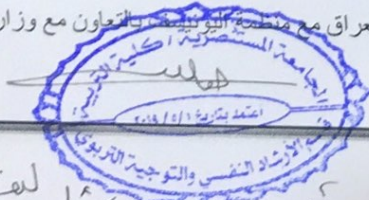 عراق مع منظمة اليونيسف بالتعاون مع وزار
الجامعة المستنصرية / كلية التربية
اعتمد بتاريخ ٢٠١٩/٥/١
قسم الأرشاد النفسي والتوجية التربوي